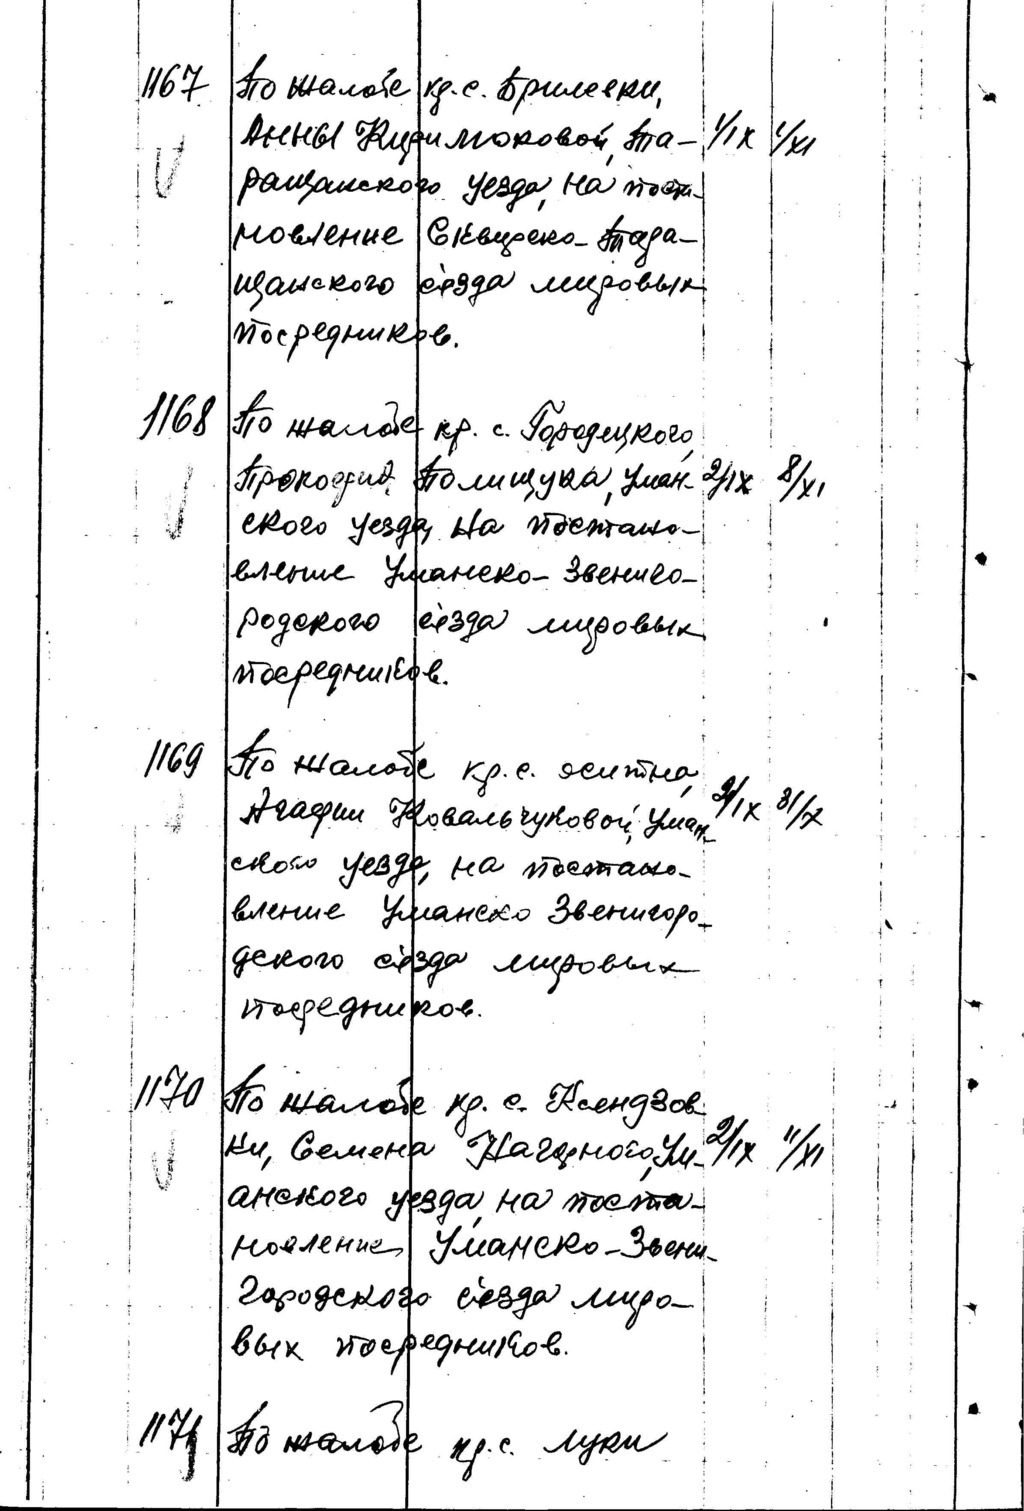 1167 По жалобе кр. с. Брилевки,
Анны Кирилюковой, Та- 1/IX 1/XI
ращанского уезда, на поста-
новление Сквирско-Тара-
щанского съезда мировых
посредников.
1168 По жалобе кр. с. Городецкого,
Прокофия Полищука, Уман- 2/IX 8/XI
ского уезда, на постано-
вление Уманско-Звениго-
родского съезда мировых
посредников.
1169 По жалобе кр. с. Оситна,
Агафии Ковальчуковой, Уман- 2/IX 31/X
ского уезда, на постано-
вление Уманско Звенигоро-
дского съезда мировых
посредников.
1170 По жалобе кр. с. Ксендзов
ки, Семена Нагорного, Ум- 2/IX 11/XI
анского уезда, на поста-
новление Уманско-Звени-
городского съезда миро-
вых посредников.
1171 По жалобе кр. с. Луки